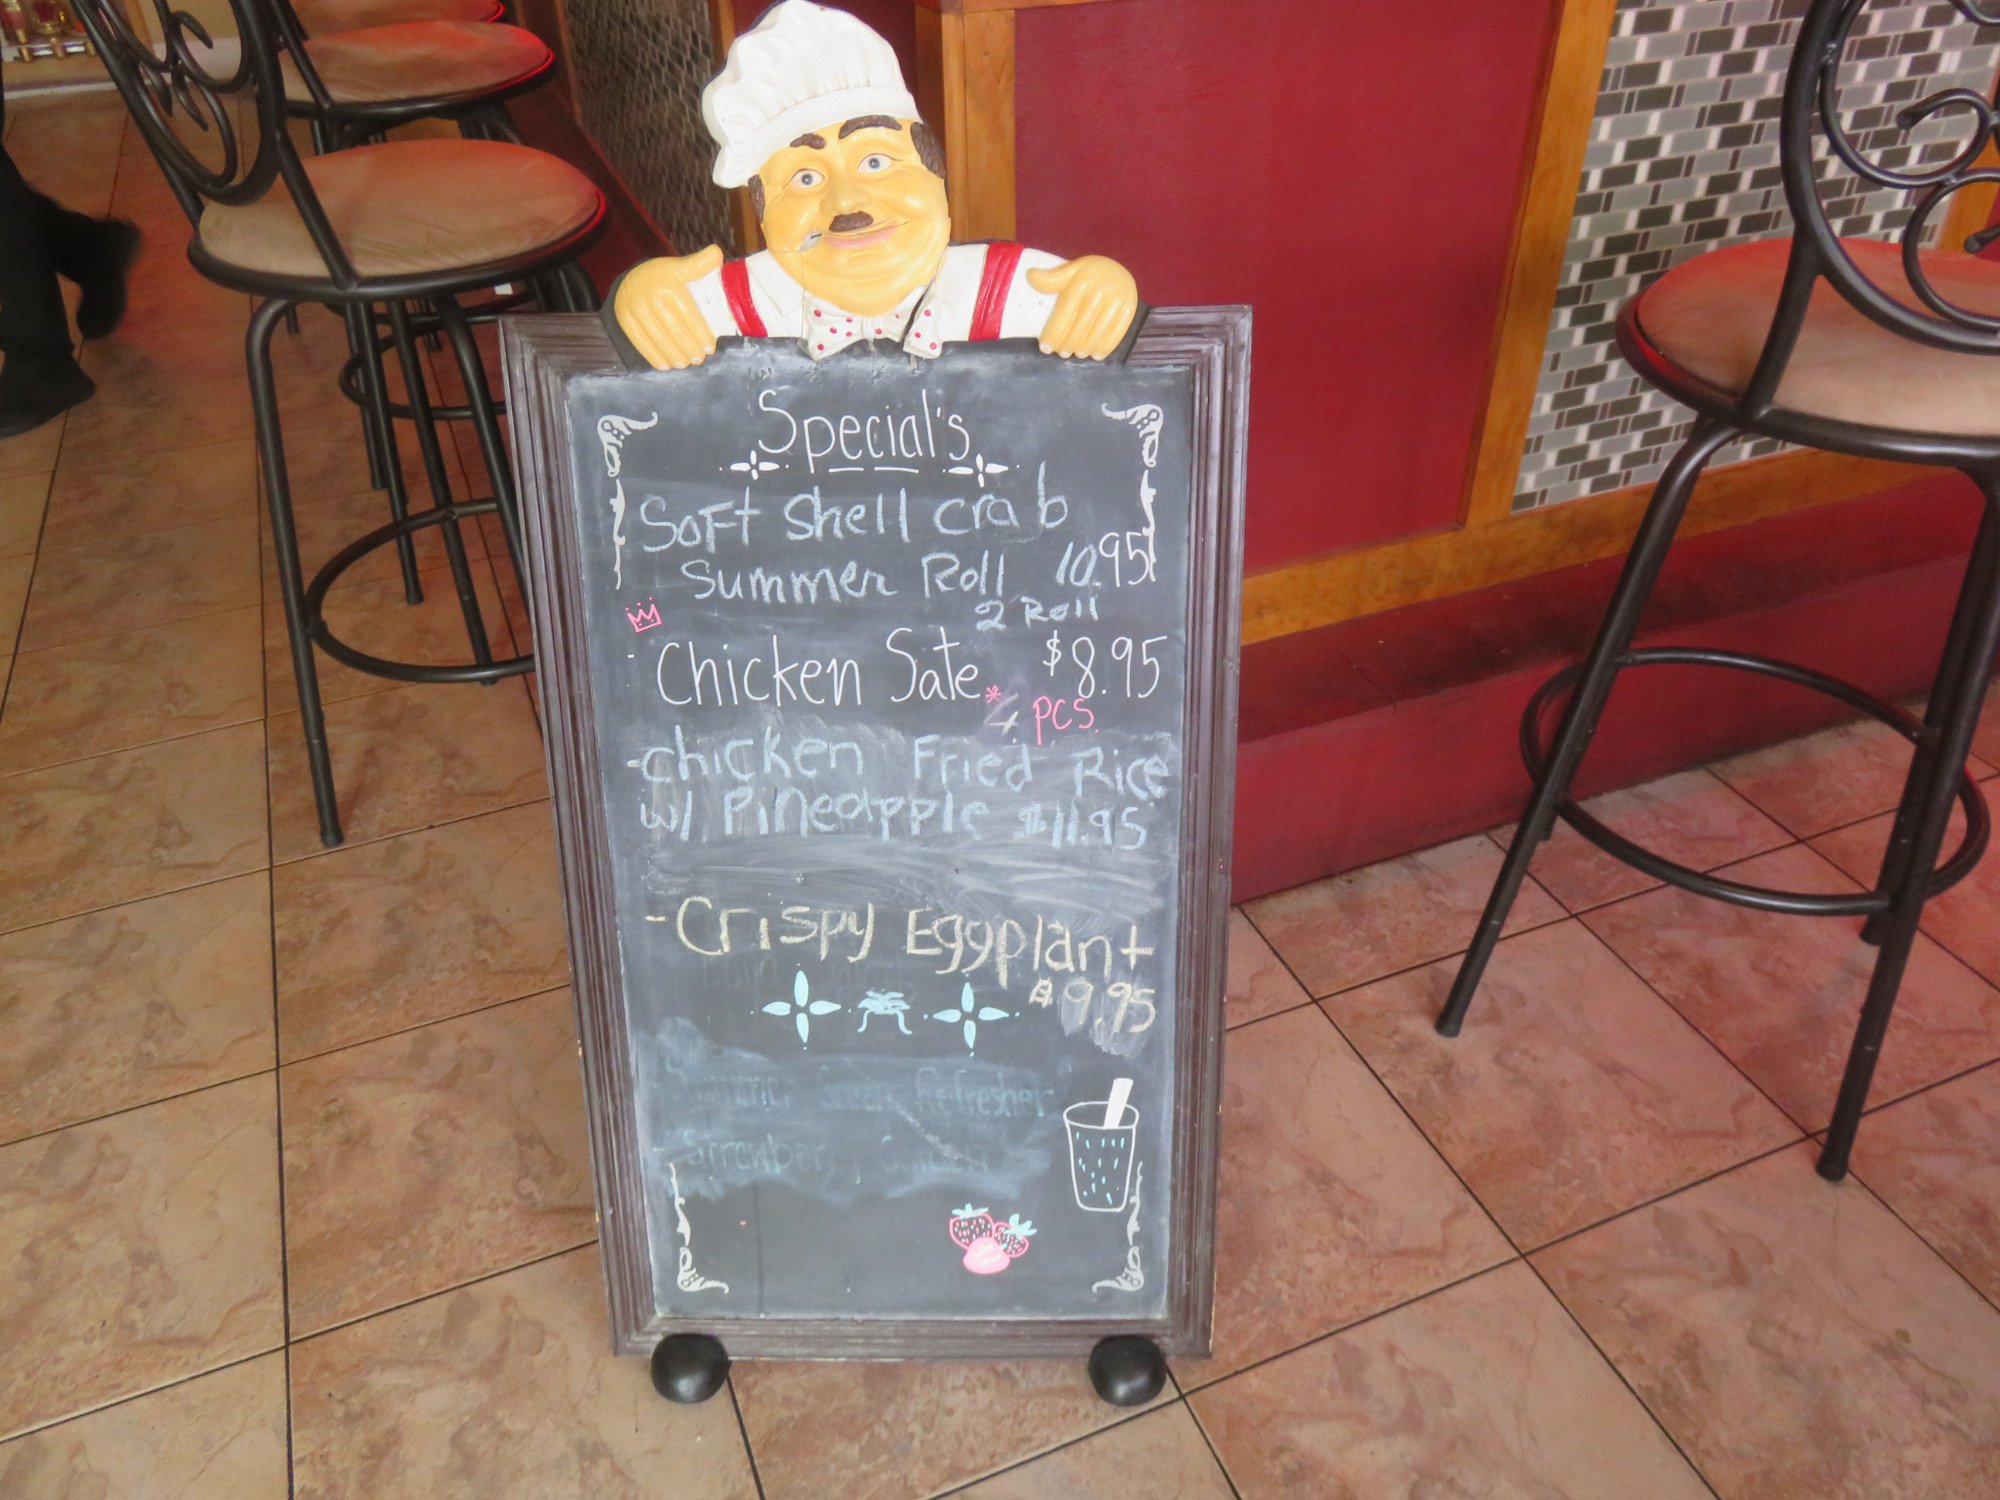 Special's
Soft Shell Crab
Summer Roll 10.95
2 Roll
- Chicken Sate $8.95
* 4 PCS.
- chicken Fried Rice
w/ Pineapple $11.95
- Crispy Eggplant
$9.95
Summer Green Refresher
Strawberry